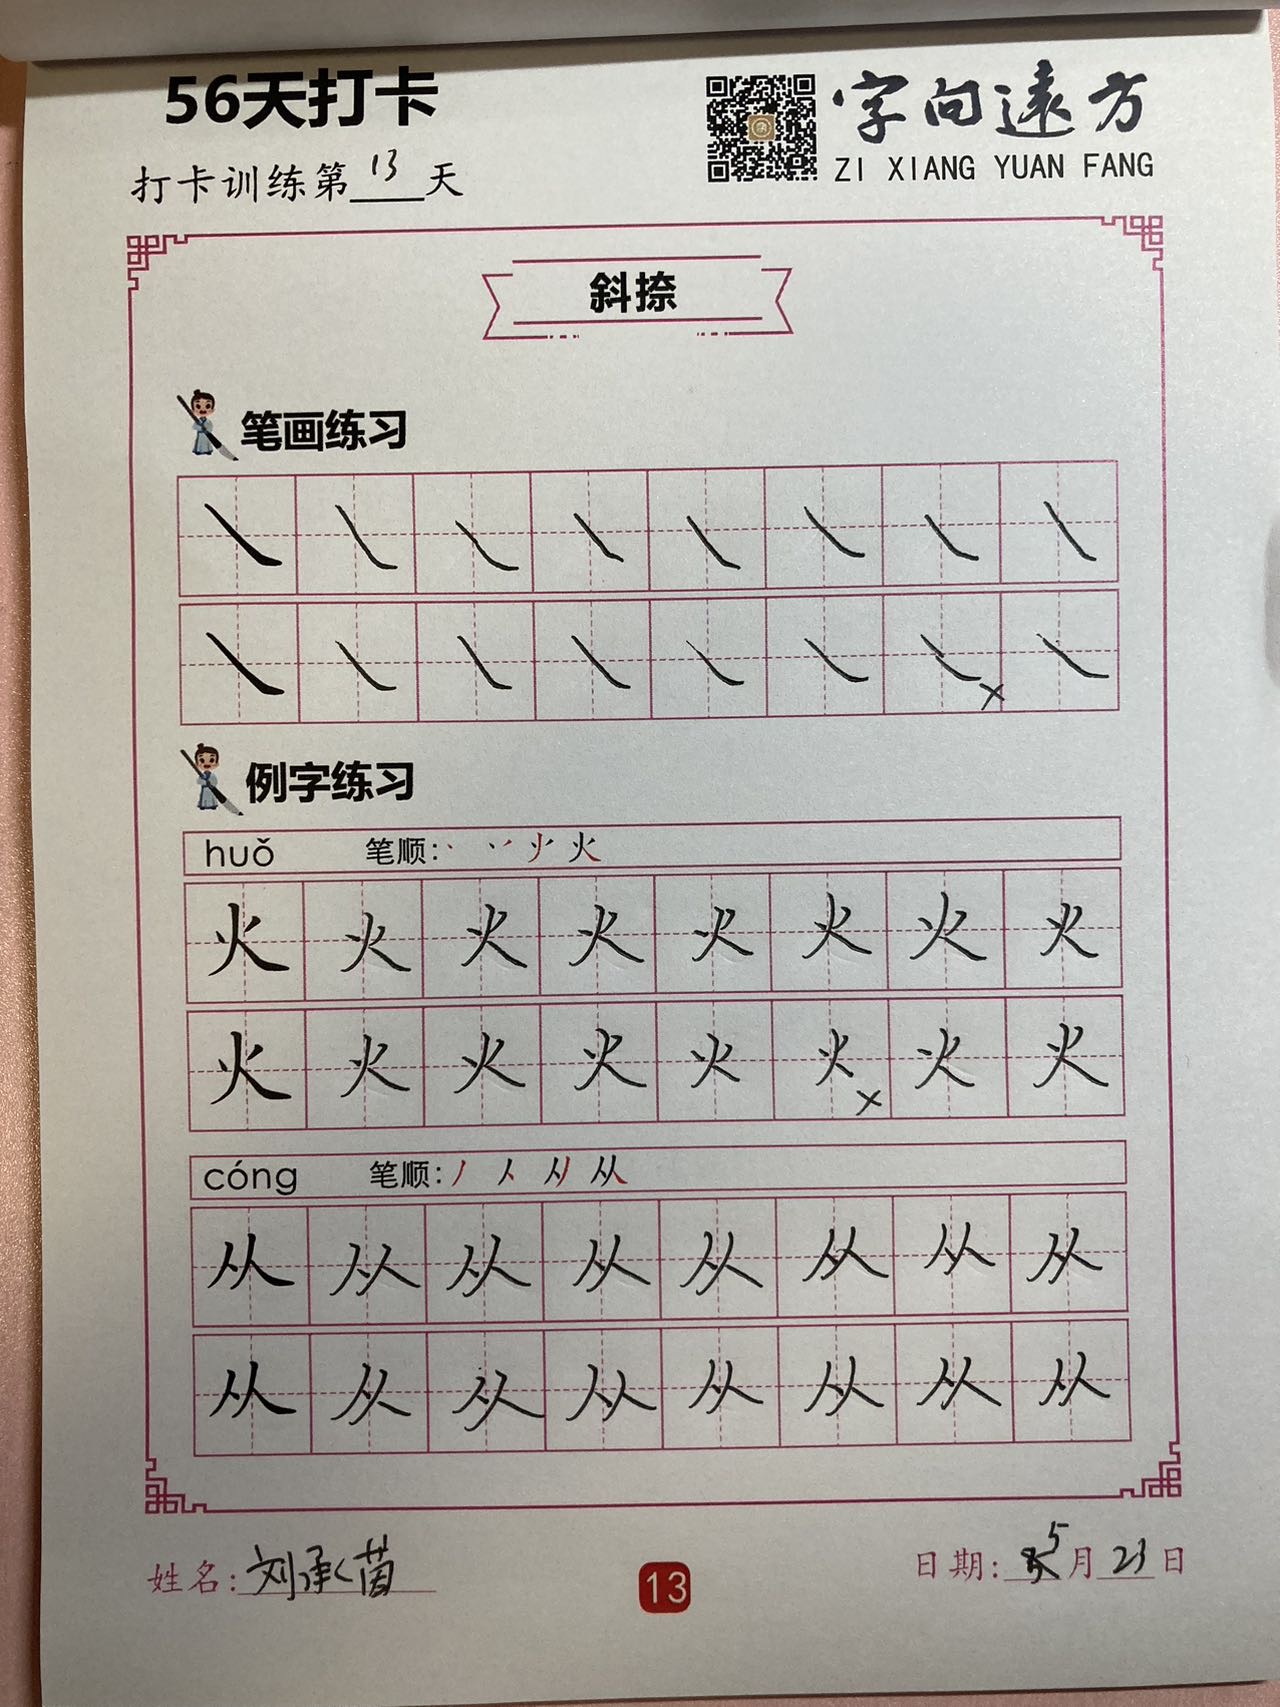 56天打卡
字向遠方
ZI XIANG YUAN FANG
打卡训练第13天
斜捺
笔画练习
㇏ ㇏ ㇏ ㇏ ㇏ ㇏ ㇏ ㇏
㇏ ㇏ ㇏ ㇏ ㇏ ㇏ ㇏ × ㇏
例字练习
huǒ 笔顺: 火
火 火 火 火 火 火 火 火
火 火 火 火 火 火 × 火 火
cóng 笔顺: 丿 人 从
从 从 从 从 从 从 从 从
从 从 从 从 从 从 从 从
姓名: 刘承茵
13
日期: 5月23日